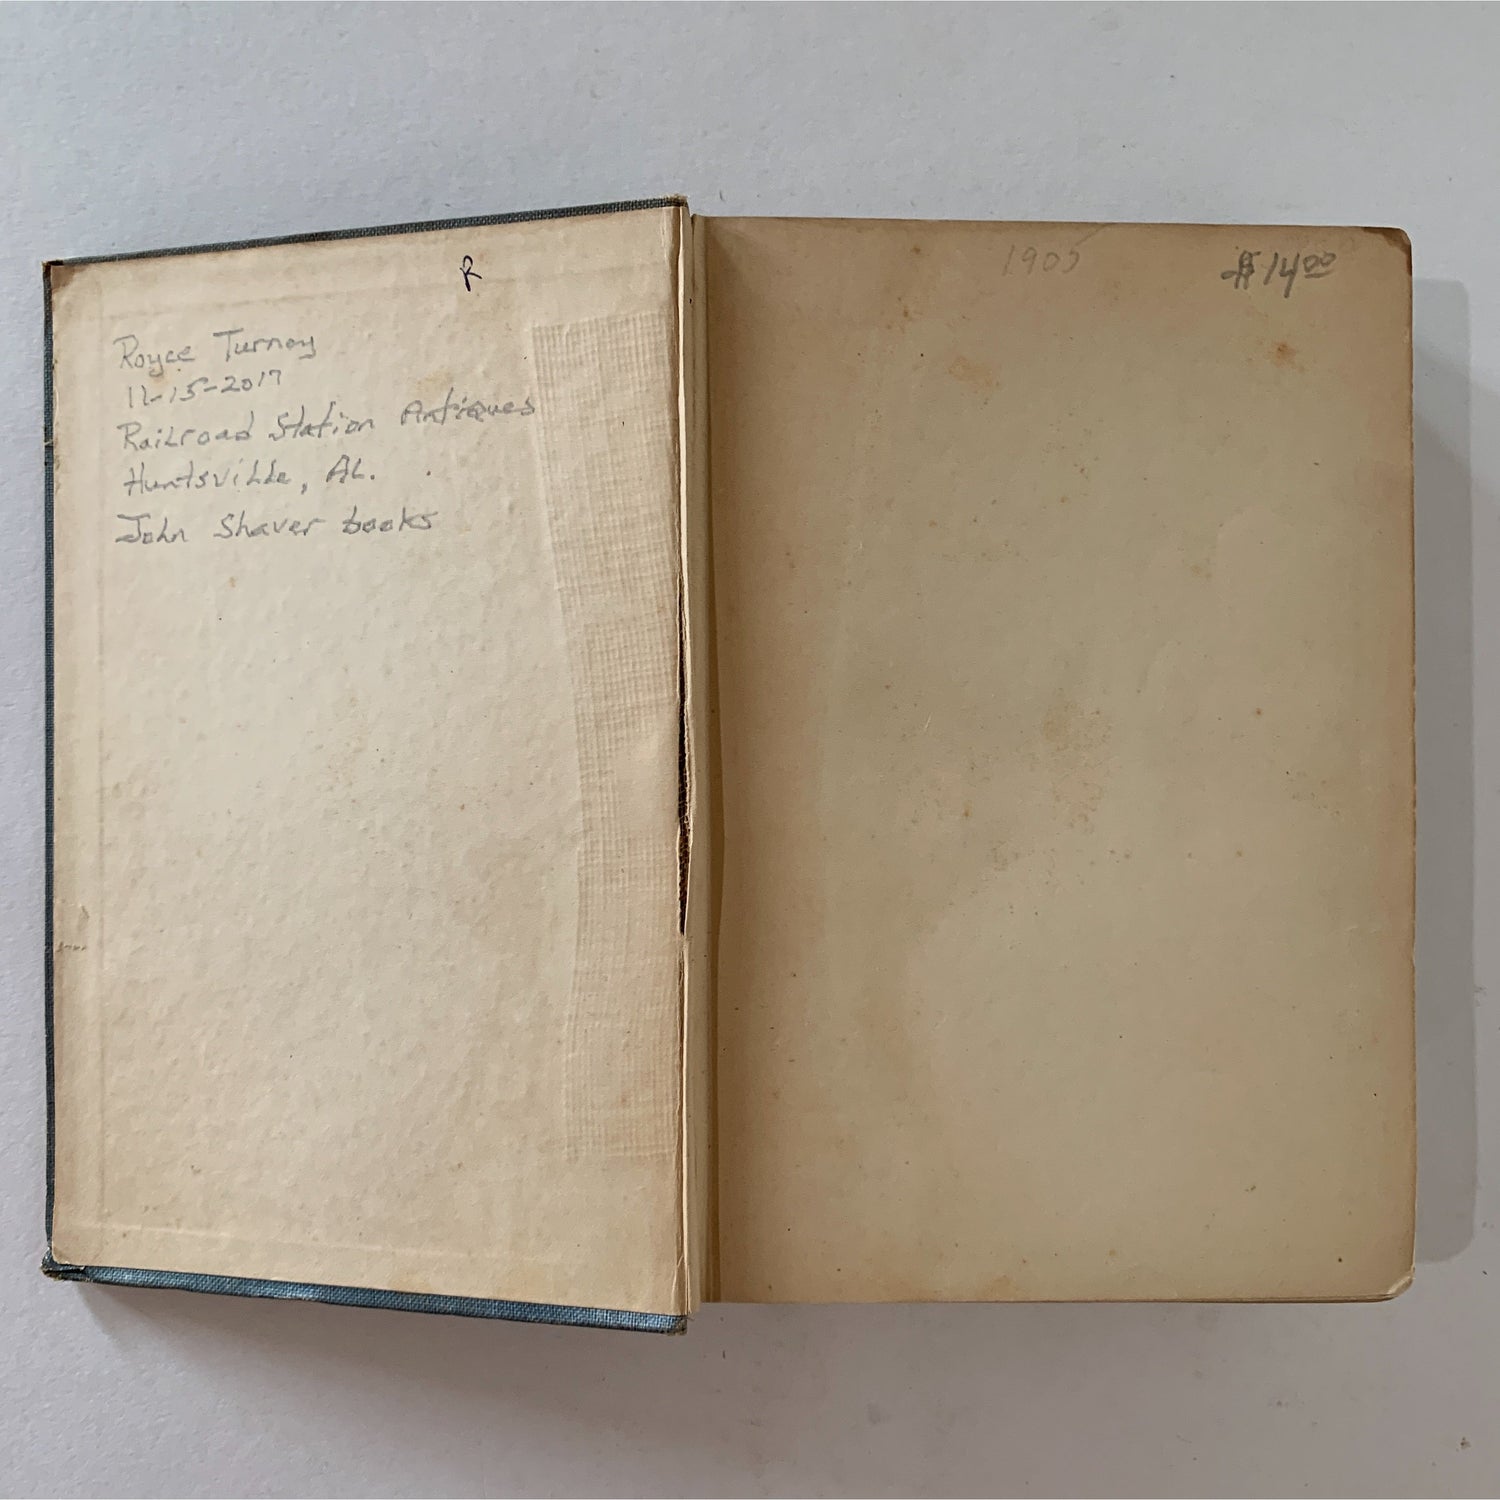 R
Royce Turney
11-15-2017
Railroad Station Antiques
Huntsville, AL.
John Shaver books
1905
$14.00